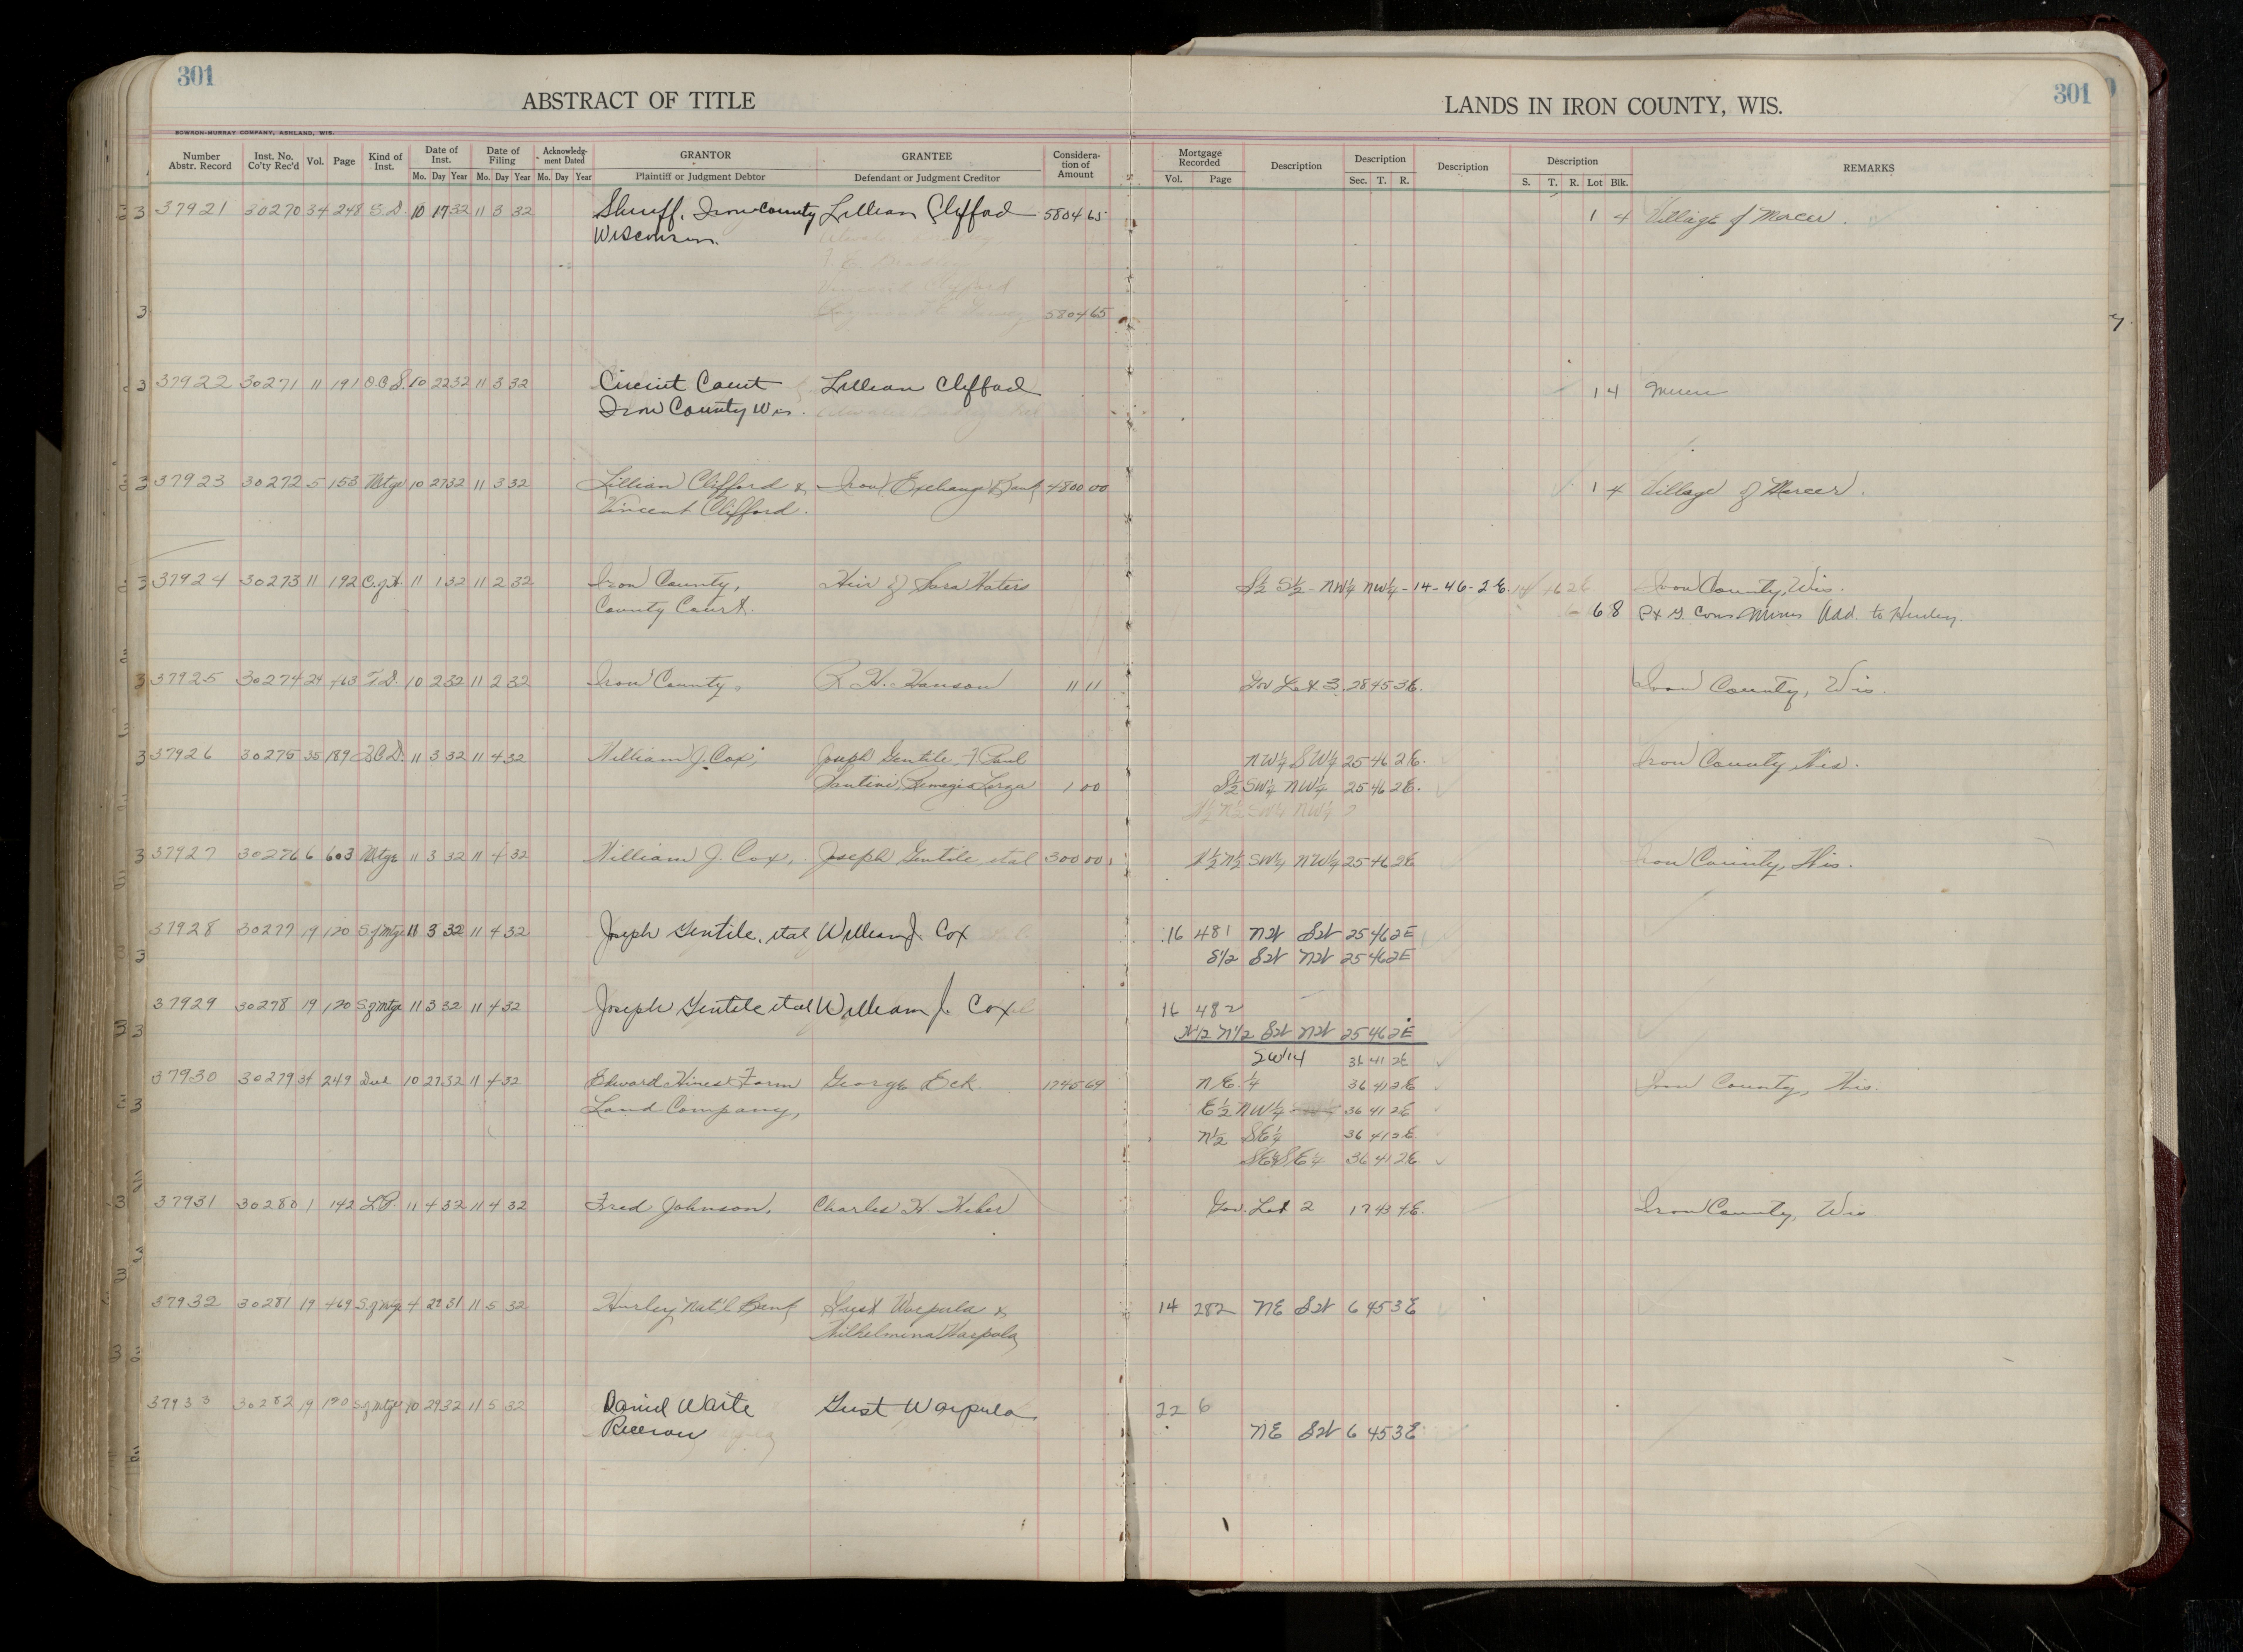 301
ABSTRACT OF TITLE
LANDS IN IRON COUNTY, WIS.
301
BOWRON-MURRAY COMPANY, ASHLAND, WIS.
Number Abstr. Record Inst. No. Co'ty Rec'd Vol. Page Kind of Inst. Date of Inst. Mo. Day Year Date of Filing Mo. Day Year Acknowledg-ment Dated Mo. Day Year GRANTOR Plaintiff or Judgment Debtor GRANTEE Defendant or Judgment Creditor Considera-tion of Amount Mortgage Recorded Vol. Page Description Description Sec. T. R. Description Description S. T. R. Lot Blk. REMARKS
37921 30270 34 248 S.D. 10 17 32 11 3 32 Sheriff, Iron County Lillian Clifford 5804 65 1 4 Village of Mercer.
Wisconsin
5804 65
37922 30271 11 191 O.C.S. 10 22 32 11 3 32 Circuit Court Lillian Clifford 1 4 Mercer
Iron County Wis.
37923 30272 5 153 Mtge 10 27 32 11 3 32 Lillian Clifford & Iron Exchange Bank 4800 00 1 4 Village of Mercer.
Vincent Clifford.
37924 30273 11 192 C. of H. 11 1 32 11 2 32 Iron County, Heir of Sara Waters S½ S½ - NW¼ NW¼ - 14 - 46 - 2 E. Iron County, Wis.
County Court. 6 8 Cons Mines Add. to Hurley.
37925 30274 29 463 T.D. 10 2 32 11 2 32 Iron County, R. H. Hanson 11 11 Gov Lot 3 28 45 3E. Iron County, Wis.
37926 30275 35 189 Q.C.D. 11 3 32 11 4 32 William J. Cox, Joseph Gentile, F Paul NW¼ SW¼ 25 46 2E. Iron County Wis.
Santini, Remegio Lorza 1 00 S½ SW¼ NW¼ 25 46 2E.
N½ N½ SW¼ NW¼
37927 30276 6 603 Mtge 11 3 32 11 4 32 William J. Cox, Joseph Gentile et al 300 00 N½ N½ SW¼ NW¼ 25 46 2E Iron County, Wis.
37928 30277 19 120 S. of Mtge 11 3 32 11 4 32 Joseph Gentile, et al William J. Cox 16 481 NW SW 25 46 2E
S1/2 SW NW 25 46 2E
37929 30278 19 120 S of Mtge 11 3 32 11 4 32 Joseph Gentile et al William J. Cox 16 482
N1/2 N1/2 SW NW 25 46 2E
SW14 36 41 2E
37930 30279 34 249 Deed 10 27 32 11 4 32 Edward Hines Farm George Eck 1745 69 NE ¼ 36 41 2E Iron County, Wis.
Land Company, E½ NW¼ 36 41 2E
N½ SE¼ 36 41 2E
SE¼ SE¼ 36 41 2E.
37931 30280 1 142 L.P. 11 4 32 11 4 32 Fred Johnson. Charles H. Weber Gov. Lot 2 17 43 4E. Iron County, Wis
37932 30281 19 469 S. of Mtge 4 29 31 11 5 32 Hurley Nat'l Bank Gust Warpula & 14 282 NE SW 6 45 3E
Wilhelmina Warpula
37933 30282 19 120 S of Mtge 10 29 32 11 5 32 Daniel Waite Gust Warpula 22 6
Receiver NE SW 6 45 3E